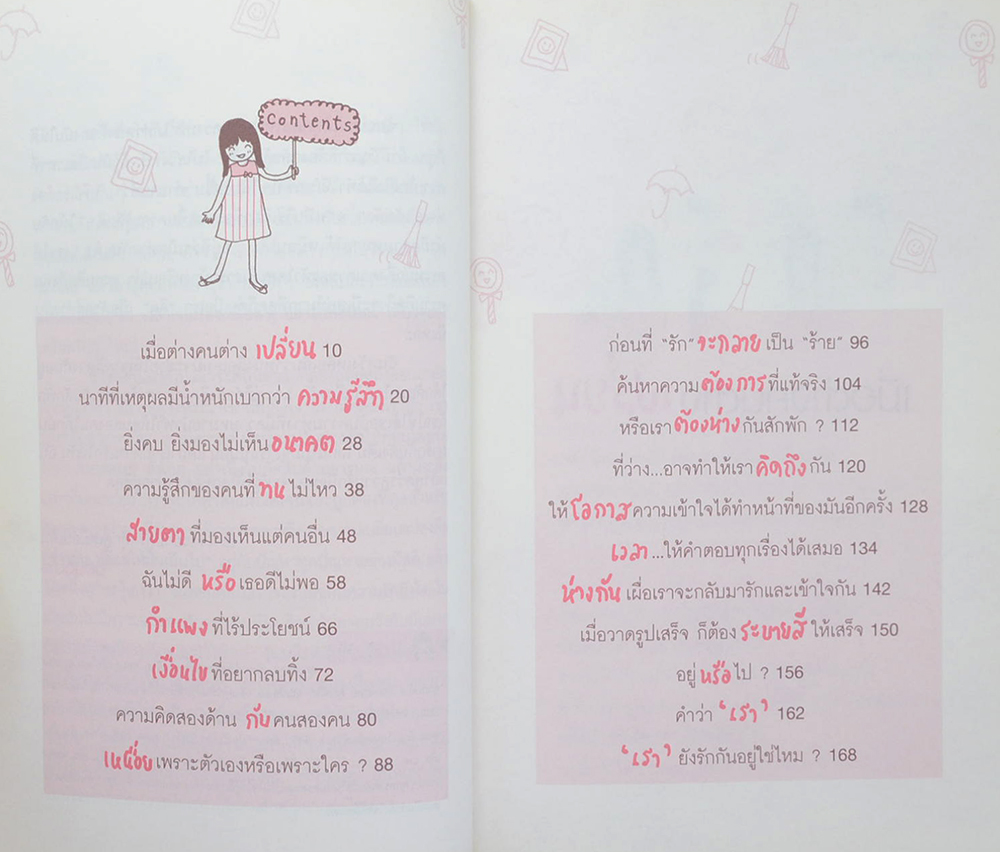 Contents
เมื่อต่างคนต่าง เปลี่ยน 10
นาทีที่เหตุผลมีน้ำหนักเบากว่า ความรู้สึก 20
ยิ่งคบ ยิ่งมองไม่เห็นอนาคต 28
ความรู้สึกของคนที่ทนไม่ไหว 38
สายตาที่มองเห็นแต่คนอื่น 48
ฉันไม่ดี หรือเธอดีไม่พอ 58
กำแพงที่ไร้ประโยชน์ 66
เงื่อนไขที่อยากลบทิ้ง 72
ความคิดสองด้าน กับคนสองคน 80
เหนื่อยเพราะตัวเองหรือเพราะใคร ? 88
ก่อนที่ "รัก" จะกลายเป็น "ร้าย" 96
ค้นหาความต้องการที่แท้จริง 104
หรือเราต้องห่างกันสักพัก ? 112
ที่ว่าง...อาจทำให้เราคิดถึงกัน 120
ให้โอกาสความเข้าใจได้ทำหน้าที่ของมันอีกครั้ง 128
เวลา...ให้คำตอบทุกเรื่องได้เสมอ 134
ห่างกันเผื่อเราจะกลับมารักและเข้าใจกัน 142
เมื่อวาดรูปเสร็จ ก็ต้องระบายสีให้เสร็จ 150
อยู่หรือไป ? 156
คำว่า 'เรา' 162
'เรา' ยังรักกันอยู่ใช่ไหม ? 168